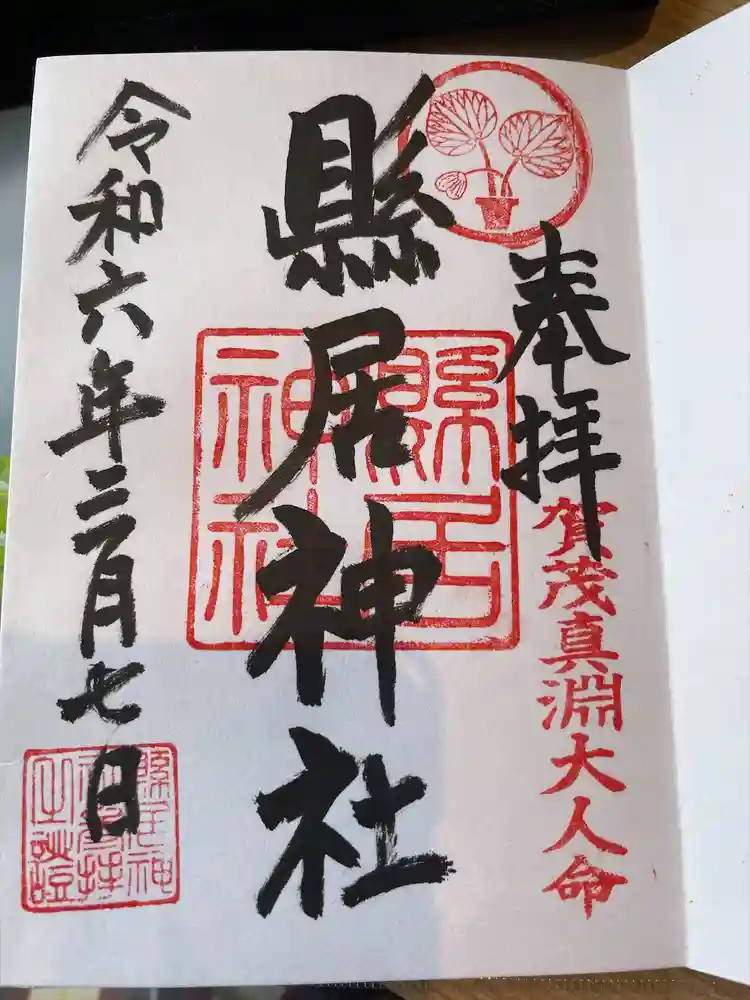 奉拝
賀茂真淵大人命
縣居神社
縣居神社
令和六年三月七日
縣居神
社参拝
之證